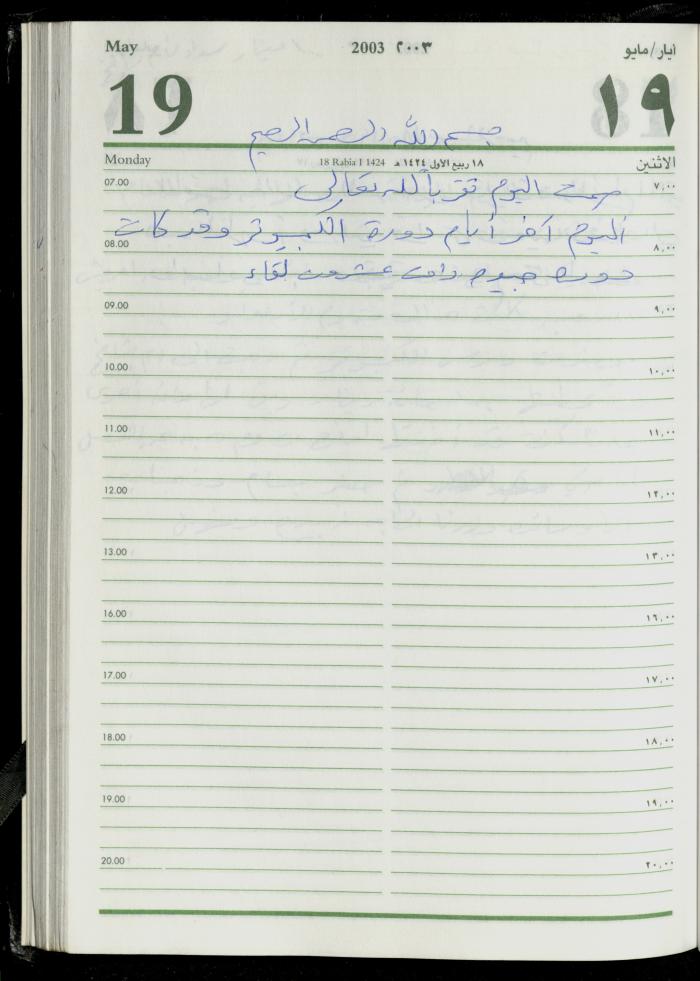 May 2003 ٢٠٠٣ ايار/مايو
19 ١٩
بسم الله الرحمن الرحيم
Monday 18 Rabia I 1424 ١٨ ربيع الأول ١٤٢٤ هـ الاثنين
07.00 صمت اليوم تقرباً لله تعالى ٧,٠٠
اليوم آخر أيام دورة الكمبيوتر وقد كانت
08.00 ٨,٠٠
دورة عشرون لقاء
09.00 ٩,٠٠
10.00 ١٠,٠٠
11.00 ١١,٠٠
12.00 ١٢,٠٠
13.00 ١٣,٠٠
16.00 ١٦,٠٠
17.00 ١٧,٠٠
18.00 ١٨,٠٠
19.00 ١٩,٠٠
20.00 ٢٠,٠٠